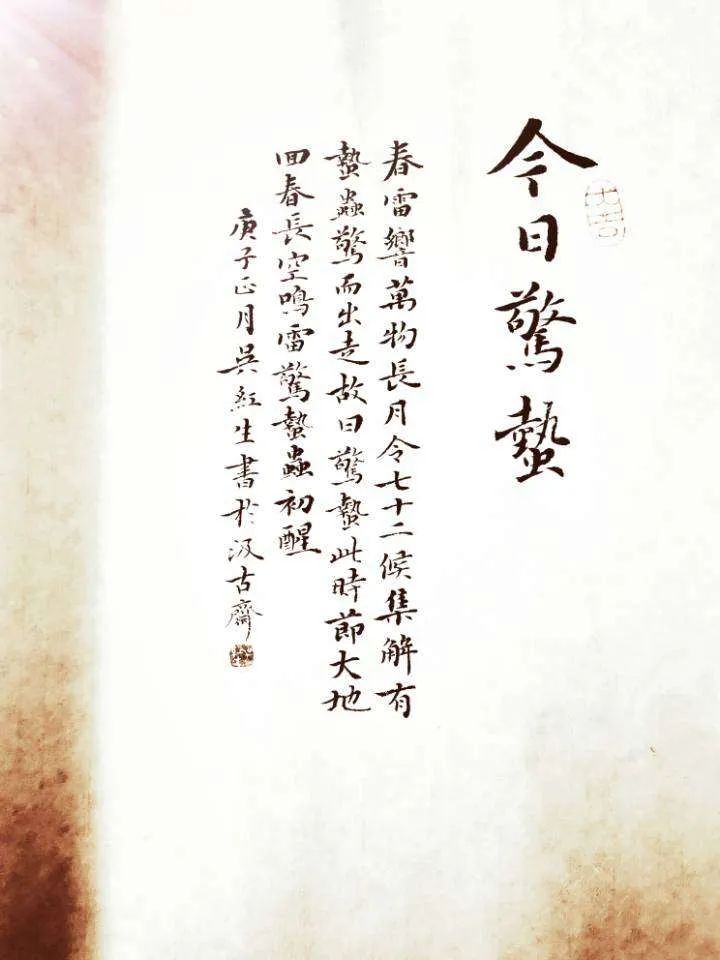 今日驚蟄
春雷響萬物長月令七十二候集解有
蟄蟲驚而出走故曰驚蟄此時節大地
回春長空鳴雷驚蟄蟲初醒
庚子正月吳紅生書於汲古齋